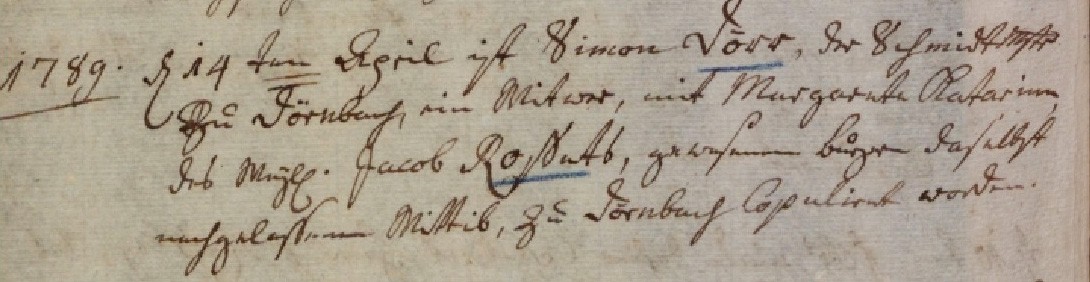 1789. d 14ten April ist Simon Dörr, der Schmidt
Zu Dörnbach, ein Witwer, mit Margareta Katarina,
des Weyl. Jacob Rossets, gewesenen burgers daselbst
nachgelassenen Wittib, zu Dörnbach Copuliert worden.